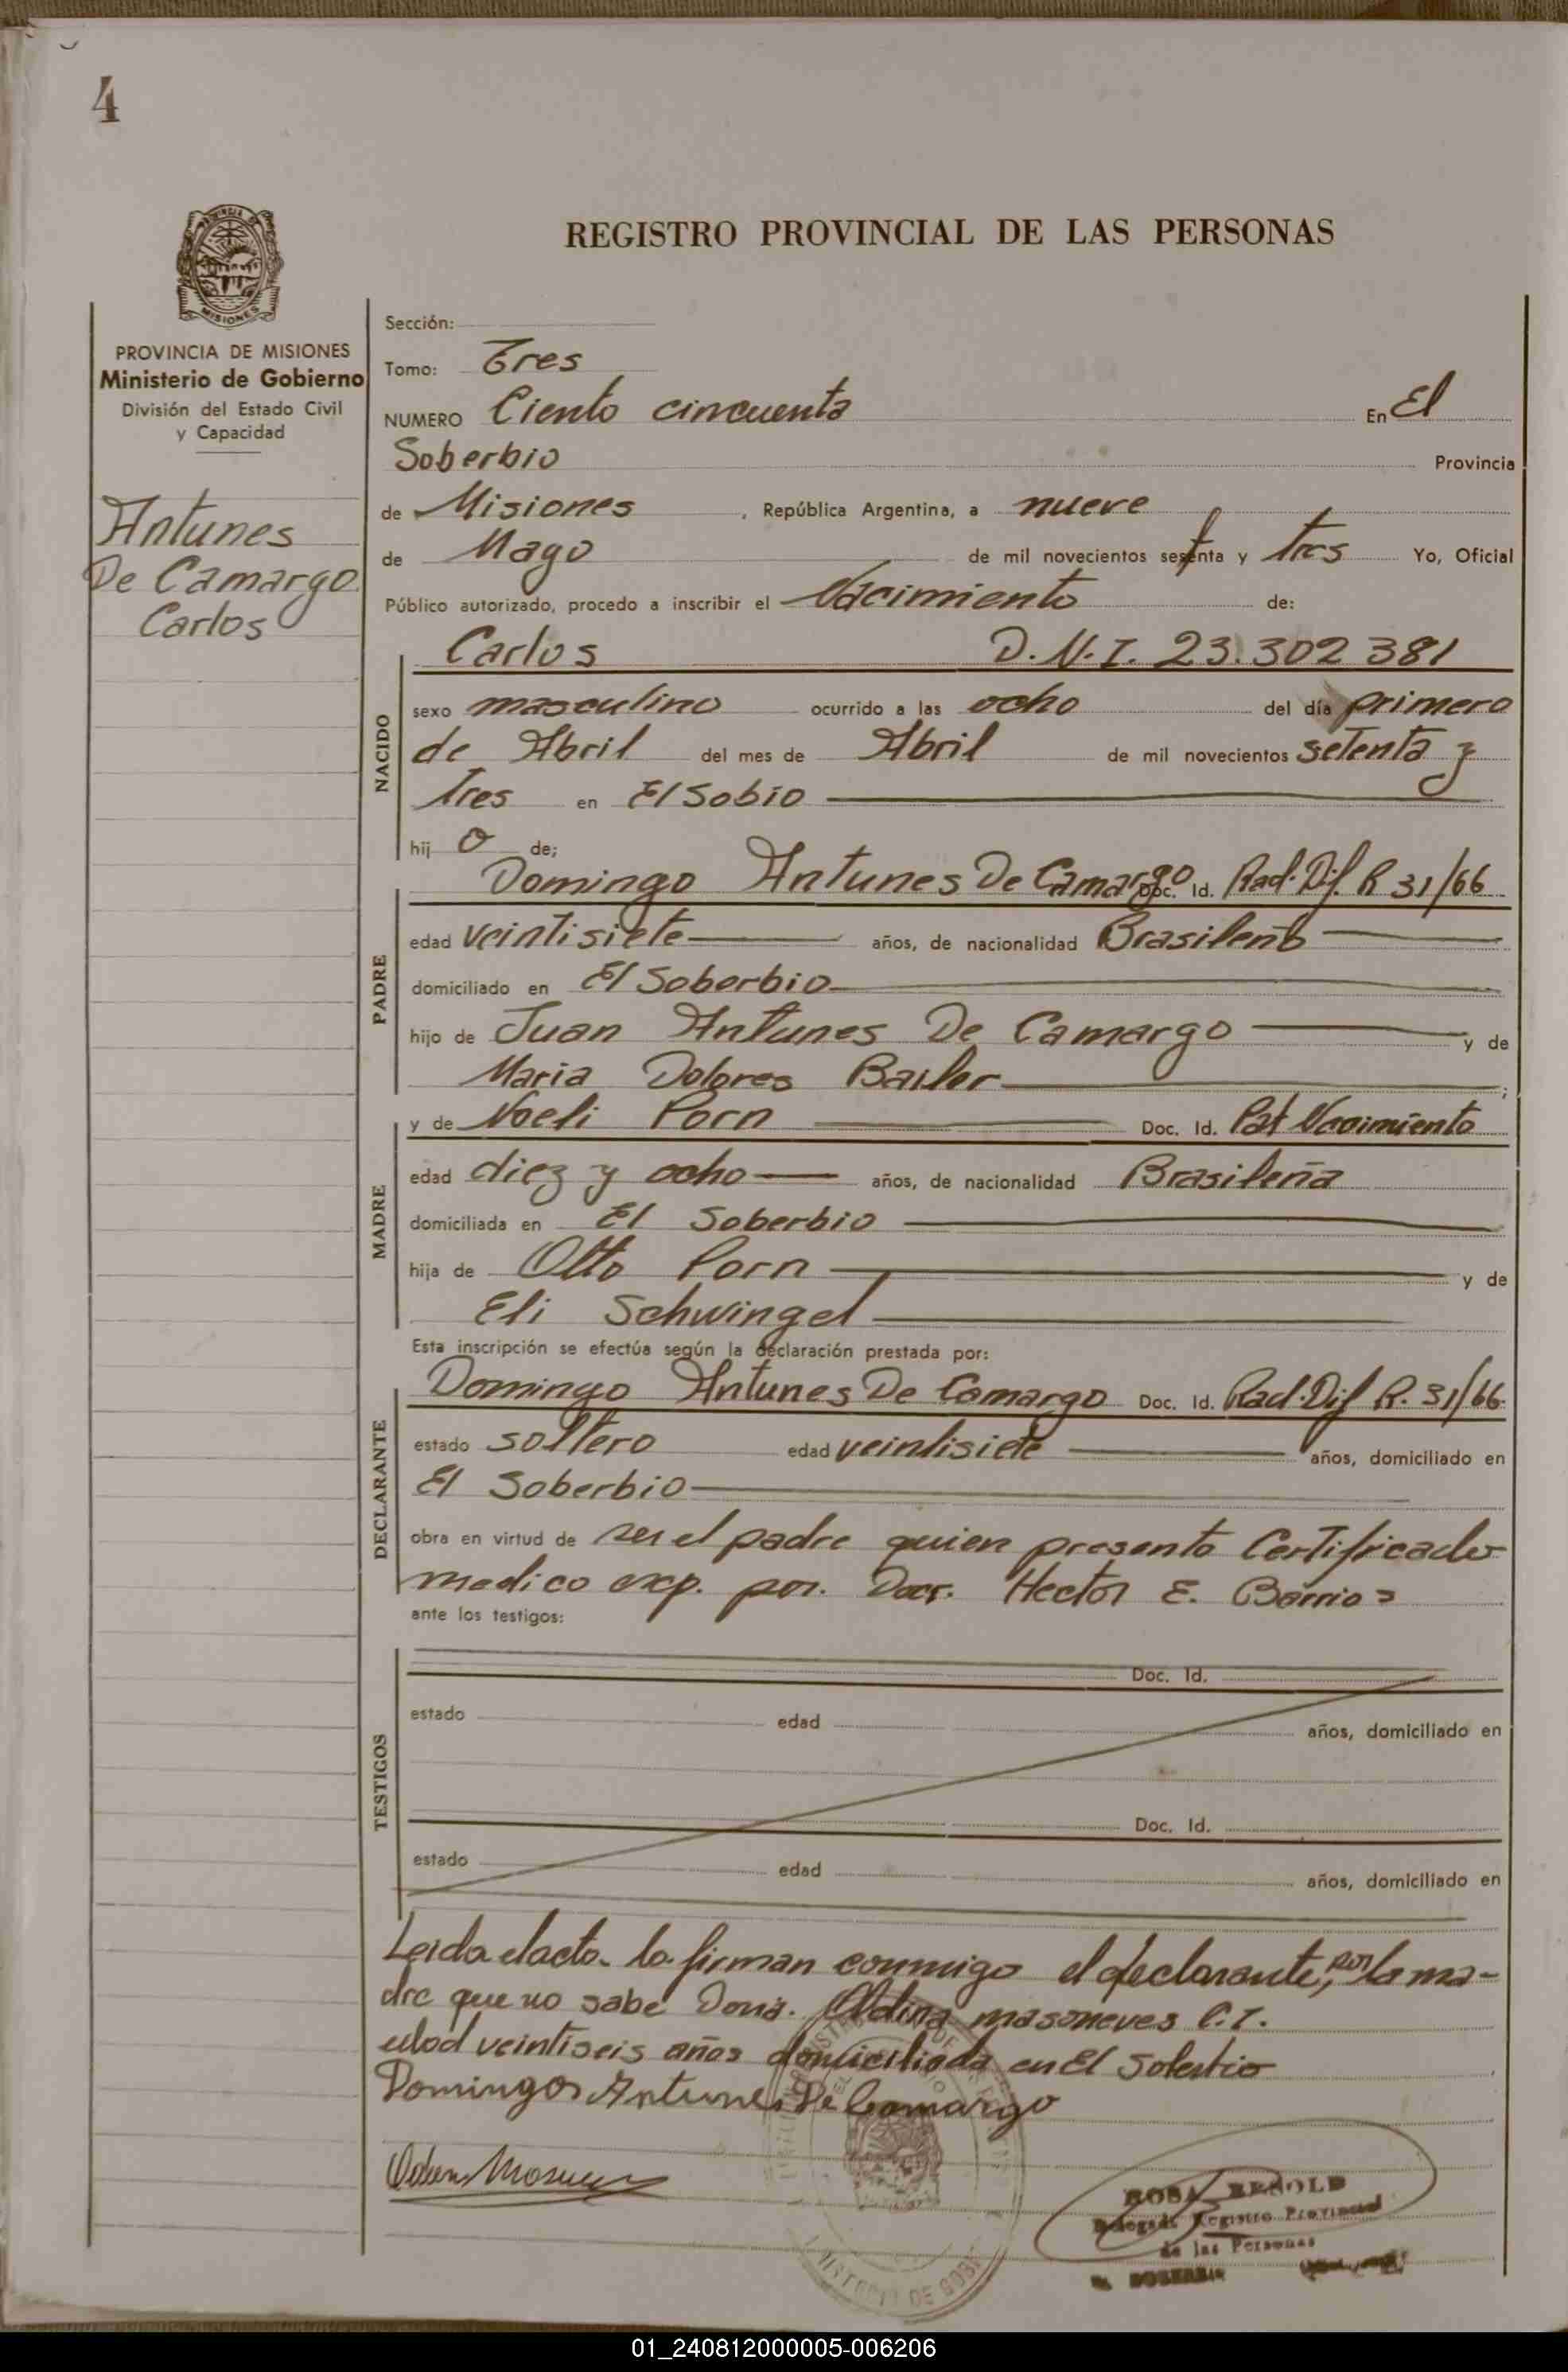 4
REGISTRO PROVINCIAL DE LAS PERSONAS
MISIONES
PROVINCIA DE MISIONES
Ministerio de Gobierno
División del Estado Civil
y Capacidad
Antunes
De Camargo
Carlos
Sección:
Tomo: Tres
NUMERO Ciento cincuenta En El
Soberbio Provincia
de Misiones , República Argentina, a nueve
de Mayo de mil novecientos setenta y tres Yo, Oficial
Público autorizado, procedo a inscribir el Nacimiento de:
Carlos D.N.I. 23.302 381
NACIDO
sexo masculino ocurrido a las ocho del día primero
de Abril del mes de Abril de mil novecientos setenta y
tres en El Sobio
hij o de;
Domingo Antunes De Camargo Doc. Id. Rad. Dif. R 31/66
PADRE
edad veintisiete años, de nacionalidad Brasileño
domiciliado en El Soberbio
hijo de Juan Antunes De Camargo y de
Maria Dolores Bailer ;
MADRE
y de Noeli Porn Doc. Id. Pat Nacimiento
edad diez y ocho años, de nacionalidad Brasileña
domiciliada en El Soberbio
hija de Otto Porn y de
Eli Schwingel
Esta inscripción se efectúa según la declaración prestada por:
DECLARANTE
Domingo Antunes De Camargo Doc. Id. Rad. Dif R. 31/66
estado soltero edad veintisiete años, domiciliado en
El Soberbio
obra en virtud de ser el padre quien presento Certificado
medico exp. por. Doct. Hector E. Barrios
ante los testigos:
TESTIGOS
Doc. Id.
estado edad años, domiciliado en
Doc. Id.
estado edad años, domiciliado en
Leida el acta. la firman conmigo el declarante, por la ma-
dre que no sabe Doña. masoneves C.I.
edad veintiseis años domiciliada en El Soberbio
Domingos Antunes De Camargo
ROSA
Delegada Registro Provincial
de las Personas
SOBERBIO
01_240812000005-006206